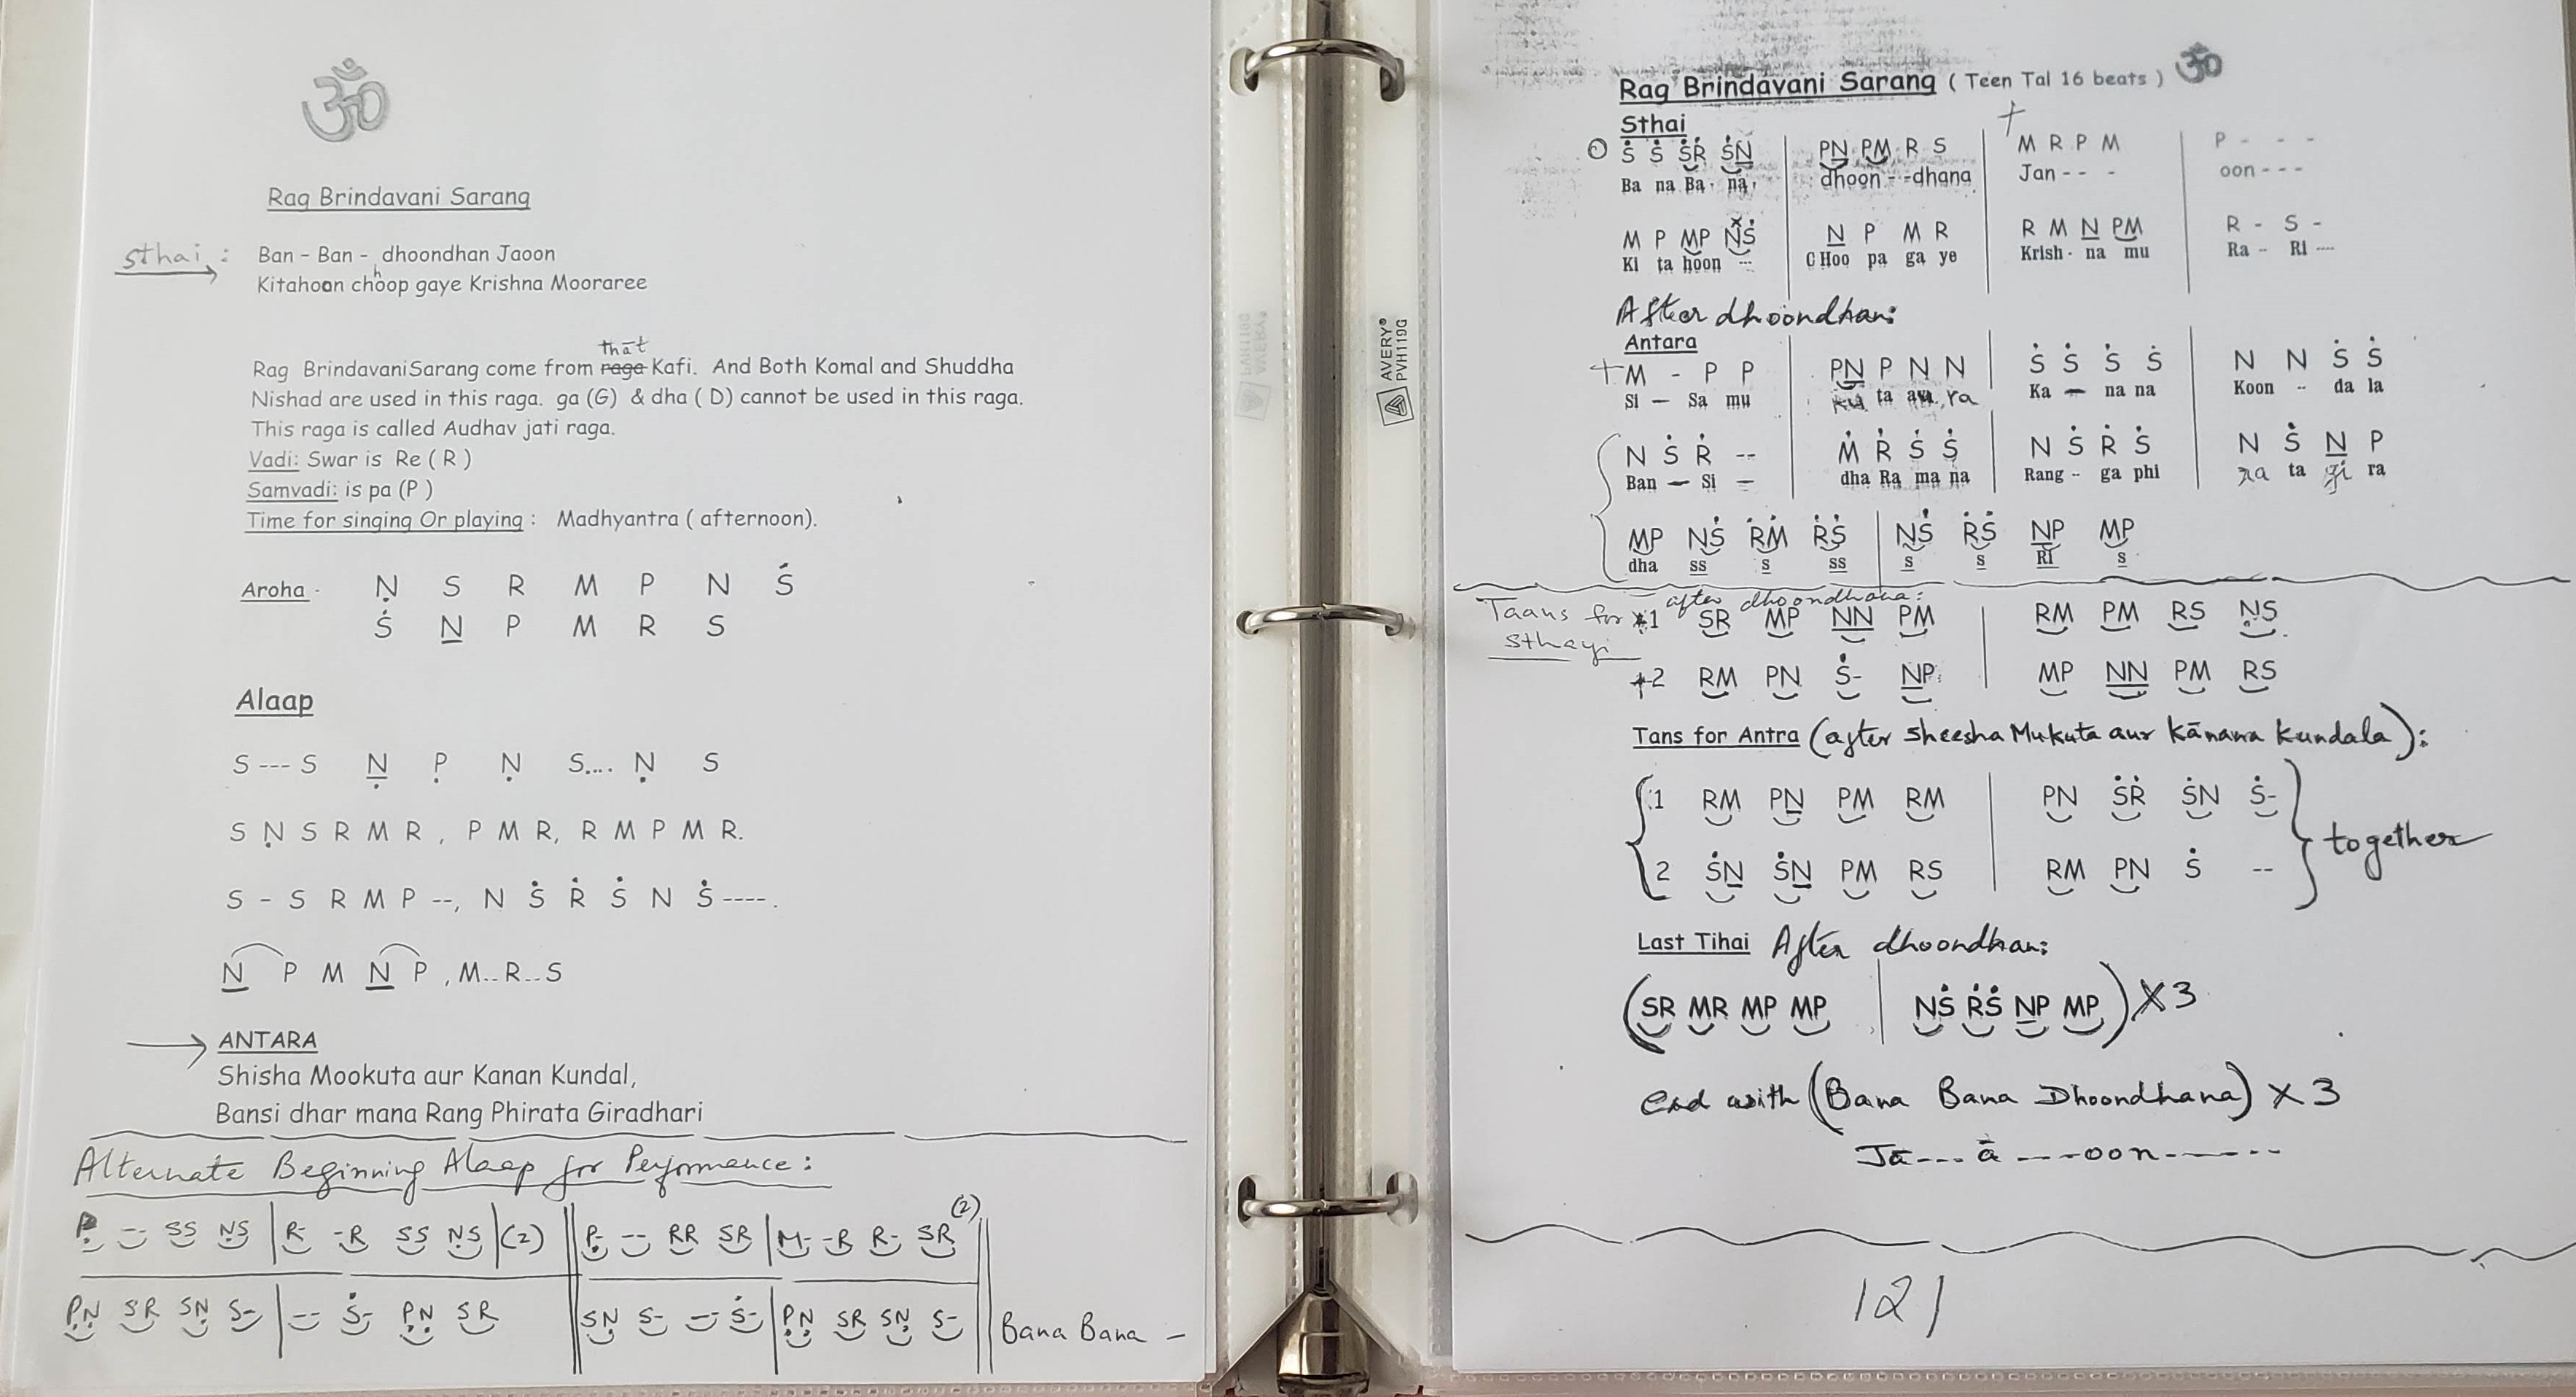 ॐ
Rag Brindavani Sarang
Sthai :
Ban - Ban - dhoondhan Jaoon
Kitahoon chhoop gaye Krishna Mooraree
thāt
Rag BrindavaniSarang come from raga Kafi. And Both Komal and Shuddha
Nishad are used in this raga. ga (G) & dha ( D) cannot be used in this raga.
This raga is called Audhav jati raga.
Vadi: Swar is Re ( R )
Samvadi: is pa (P )
Time for singing Or playing : Madhyantra ( afternoon).
Aroha - Ṇ S R M P N Ṡ
Ṡ N̲ P M R S
Alaap
S --- S Ṇ̲ P̣ Ṇ S.... Ṇ S
S Ṇ S R M R , P M R, R M P M R.
S - S R M P --, N Ṡ Ṙ Ṡ N Ṡ ----.
N̲ P M N̲ P , M.. R... S
ANTARA
Shisha Mookuta aur Kanan Kundal,
Bansi dhar mana Rang Phirata Giradhari
Alternate Beginning Alaap for Performance:
P̣- -- SS ṆS | R- -R SS ṆS | (2) || P̣- -- RR SR | M- -R R- SR (2) ||
P̣Ṇ SR SṆ S- | -- Ṡ- P̣Ṇ SR || SṆ S- -- Ṡ- | P̣Ṇ SR SṆ S- || Bana Bana -
AVERY®
PVH119G
Rag Brindavani Sarang ( Teen Tal 16 beats ) ॐ
Sthai
O Ṡ Ṡ ṠṘ ṠN̲ | PN̲ PM R S | + M R P M | P - - -
Ba na Ba - na, dhoon - -dhana Jan - - - oon - - -
M P MP NṠ x | N̲ P M R | R M N̲ PM | R - S -
Ki ta hoon --- CHoo pa ga ye Krish - na mu Ra -- Ri ----
After dhoondhan:
Antara
+ M - P P | PN̲ P N N | Ṡ Ṡ Ṡ Ṡ | N N Ṡ Ṡ
Si — Sa mu ku ta au ra Ka — na na Koon -- da la
N Ṡ Ṙ -- | Ṁ Ṙ Ṡ Ṡ | N Ṡ Ṙ Ṡ | N Ṡ N̲ P
Ban — Si — dha Ra ma na Rang -- ga phi ra ta gi ra
MP NṠ ṘṀ ṘṠ | NṠ ṘṠ N̲P MP
dha ss s ss s s RI s
Taans for sthayi after dhoondhana:
*1 SR MP N̲N̲ PM | RM PM RS ṆS.
*2 RM PN Ṡ- N̲P | MP N̲N̲ PM RS
Tans for Antra (after Sheesha Mukuta aur Kānana Kundala):
1 RM PN̲ PM RM | PN ṠṘ ṠN Ṡ-
2 ṠN̲ ṠN̲ PM RS | RM PN Ṡ --
together
Last Tihai After dhoondhan:
(SR MR MP MP | NṠ ṘṠ N̲P MP) X3
End with (Bana Bana Dhoondhana) X3
Jā---ā----oon------
121